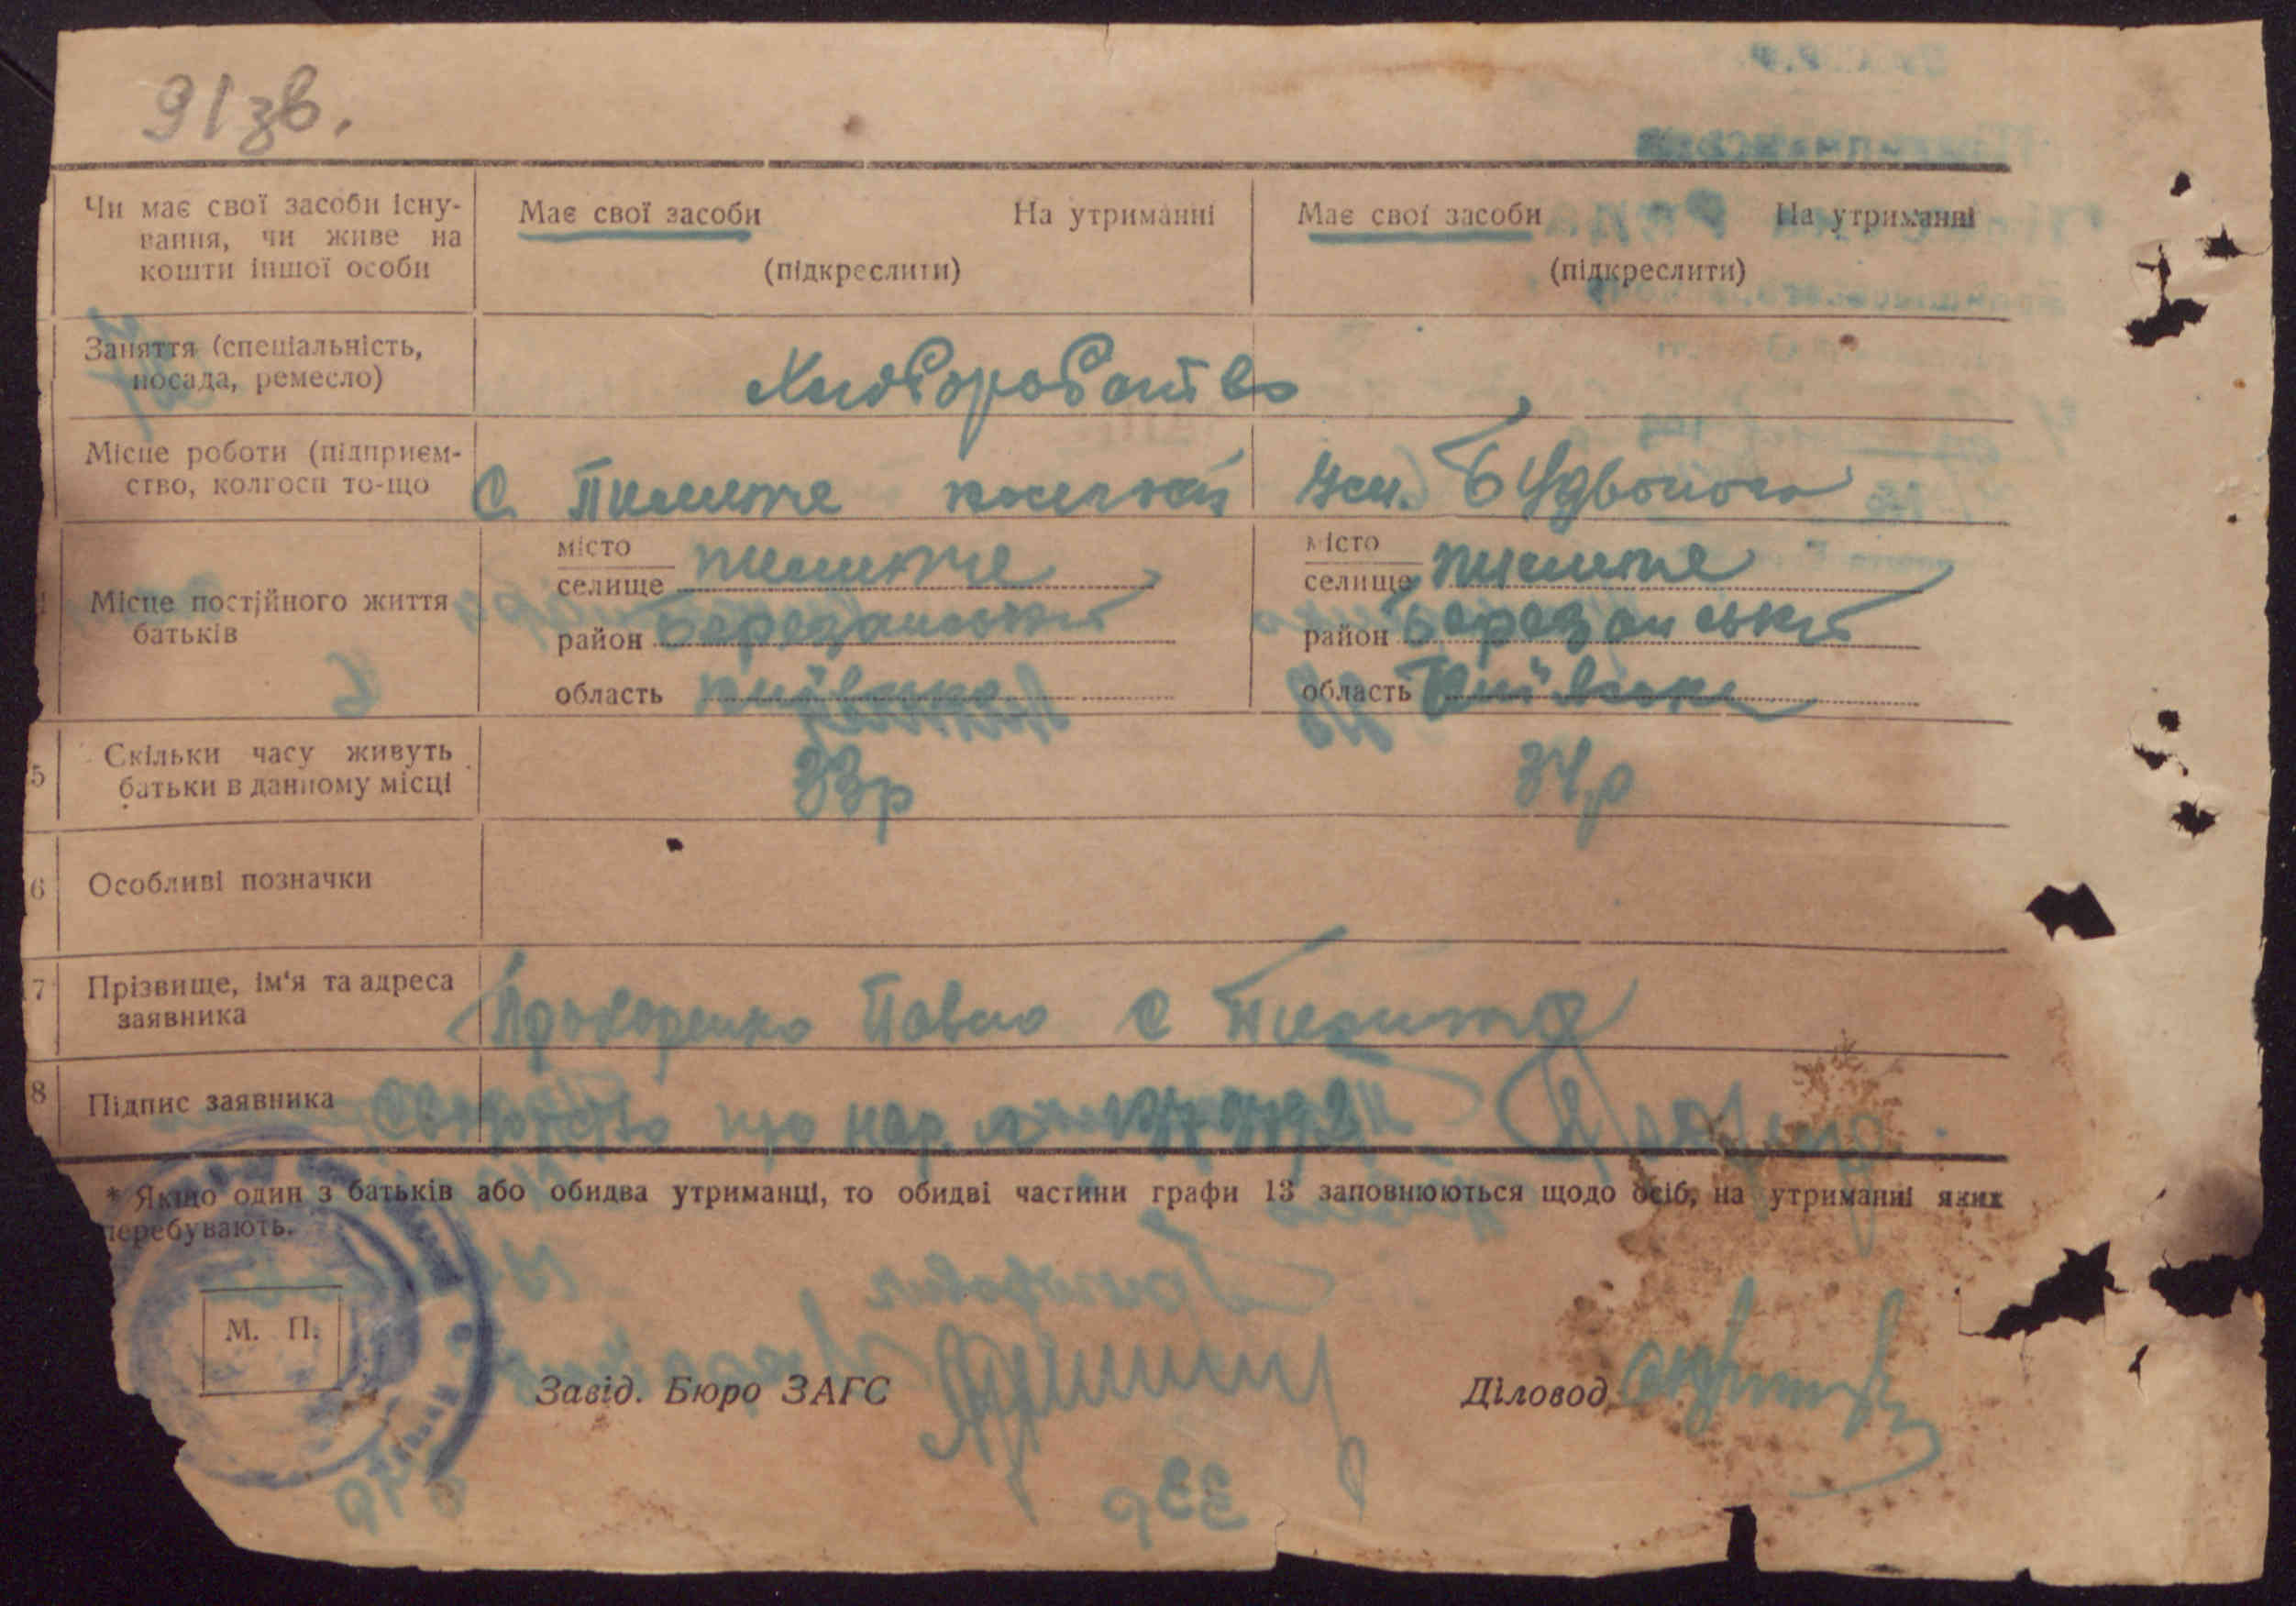 91зв.
Чи має свої засоби існу-
вання, чи живе на
кошти іншої особи
Має свої засоби На утриманні
(підкреслити)
Має свої засоби На утриманні
(підкреслити)
Заняття (спеціальність,
посада, ремесло)
Хліборобство
Місце роботи (підприєм-
ство, колгосп то-що
С
Місце постійного життя
батьків
місто
селище
район Березанський
область Київська
місто
селище
район Березанський
область Київська
5 Скільки часу живуть
батьки в данному місці
33р
34р
6 Особливі позначки
7 Прізвище, ім'я та адреса
заявника
Прохоренко Павло с
8 Підпис заявника
* Якщо один з батьків або обидва утриманці, то обидві частини графи 13 заповнюються щодо осіб, на утриманні яких
перебувають.
М. П.
Завід. Бюро ЗАГС
Діловод